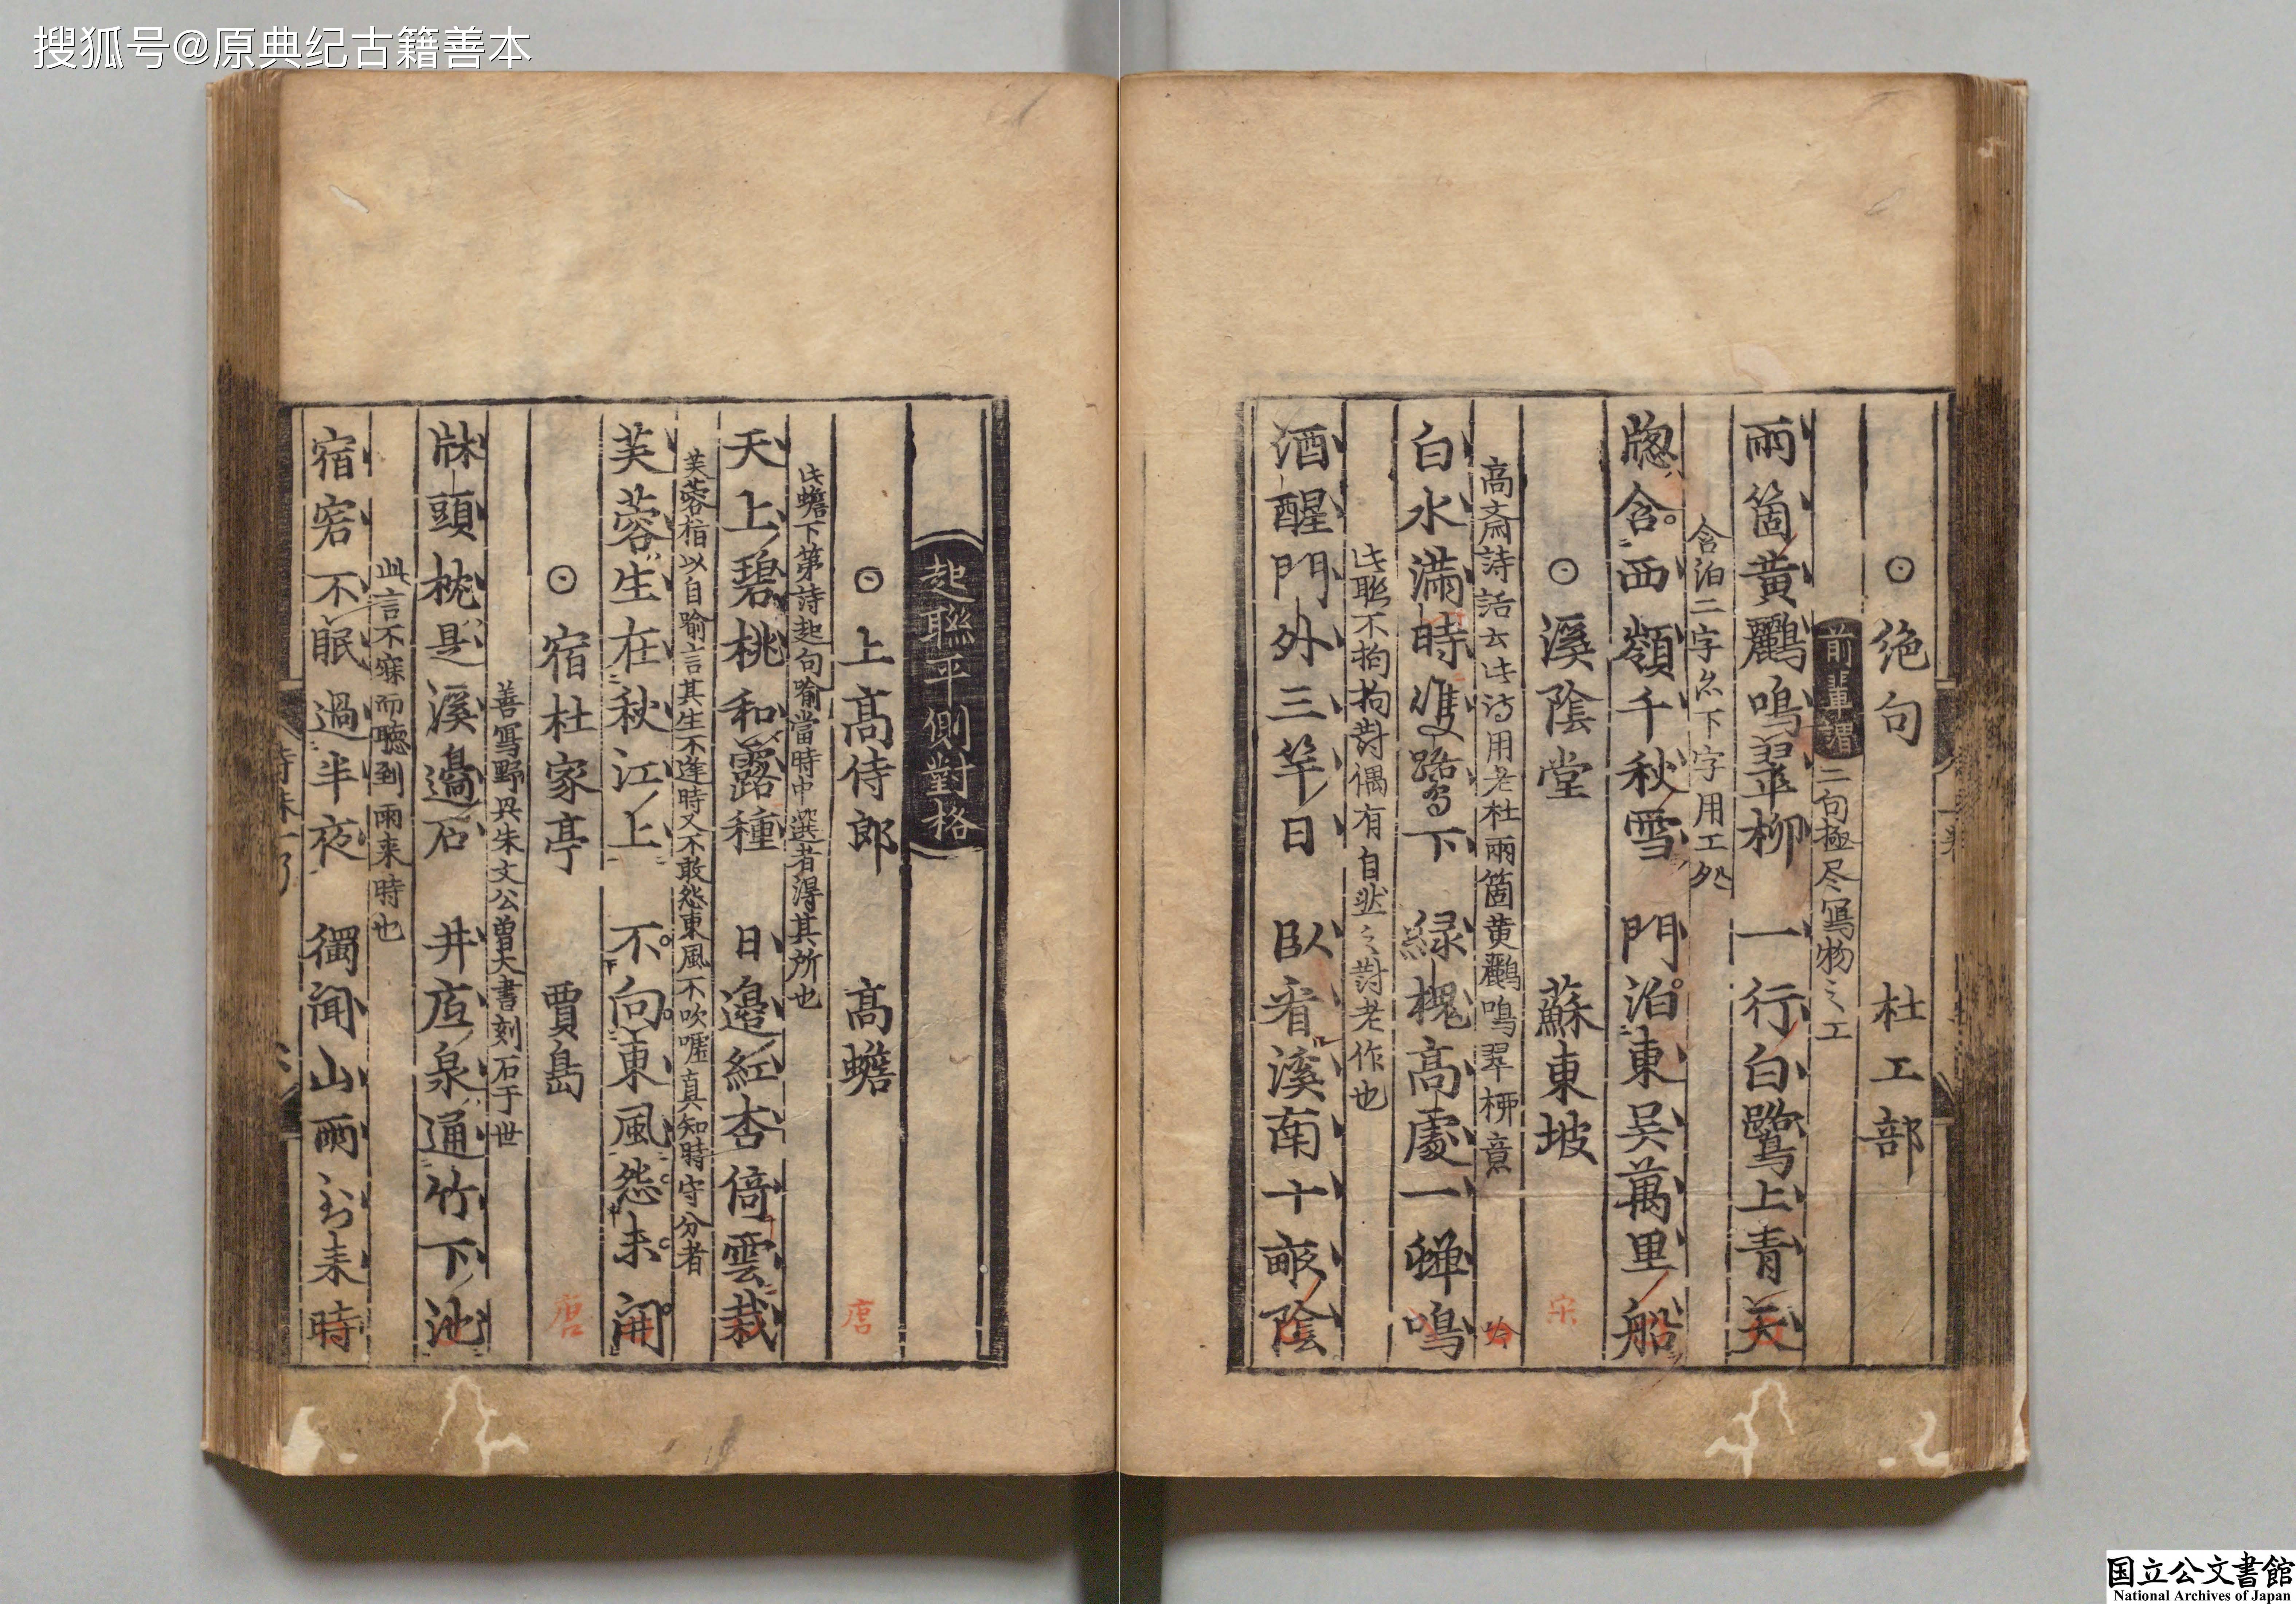 搜狐号@原典纪古籍善本
⊙絶句　杜工部
前輩謂二句極尽寫物之工
兩箇黃鸝鳴翠柳　一行白鷺上青天
含泊二字炁下字用工処
牎含西嶺千秋雪　門泊東吴萬里船
⊙溪隂堂　蘇東坡　宋
高斎詩話云此诗用老杜兩箇黄鸝鳴翠柳意
白水滿時雙鷺下　緑槐髙處一蟬鳴
此聮不拘拘對偶有自然之對老作也
酒醒門外三竿日　臥看溪南十畝隂
起聮平側對格
⊙上髙侍郎　髙蟾　唐
此蟾下第詩起句喻當時中選者得其所也
天上碧桃和露種　日邉紅杏倚雲栽
芙蓉指以自喻言其生不逢時又不敢怨東風不吹嘘真知時守分者
芙蓉生在秋江上　不向東風怨未開
⊙宿杜家亭　賈島　唐
善寫野興朱文公曽大書刻石于世
牀頭枕是溪邉石　井底泉通竹下池
此言不寐而聴到雨来時也
宿客不眠過半夜　獨聞山雨到来時
国立公文書館
National Archives of Japan